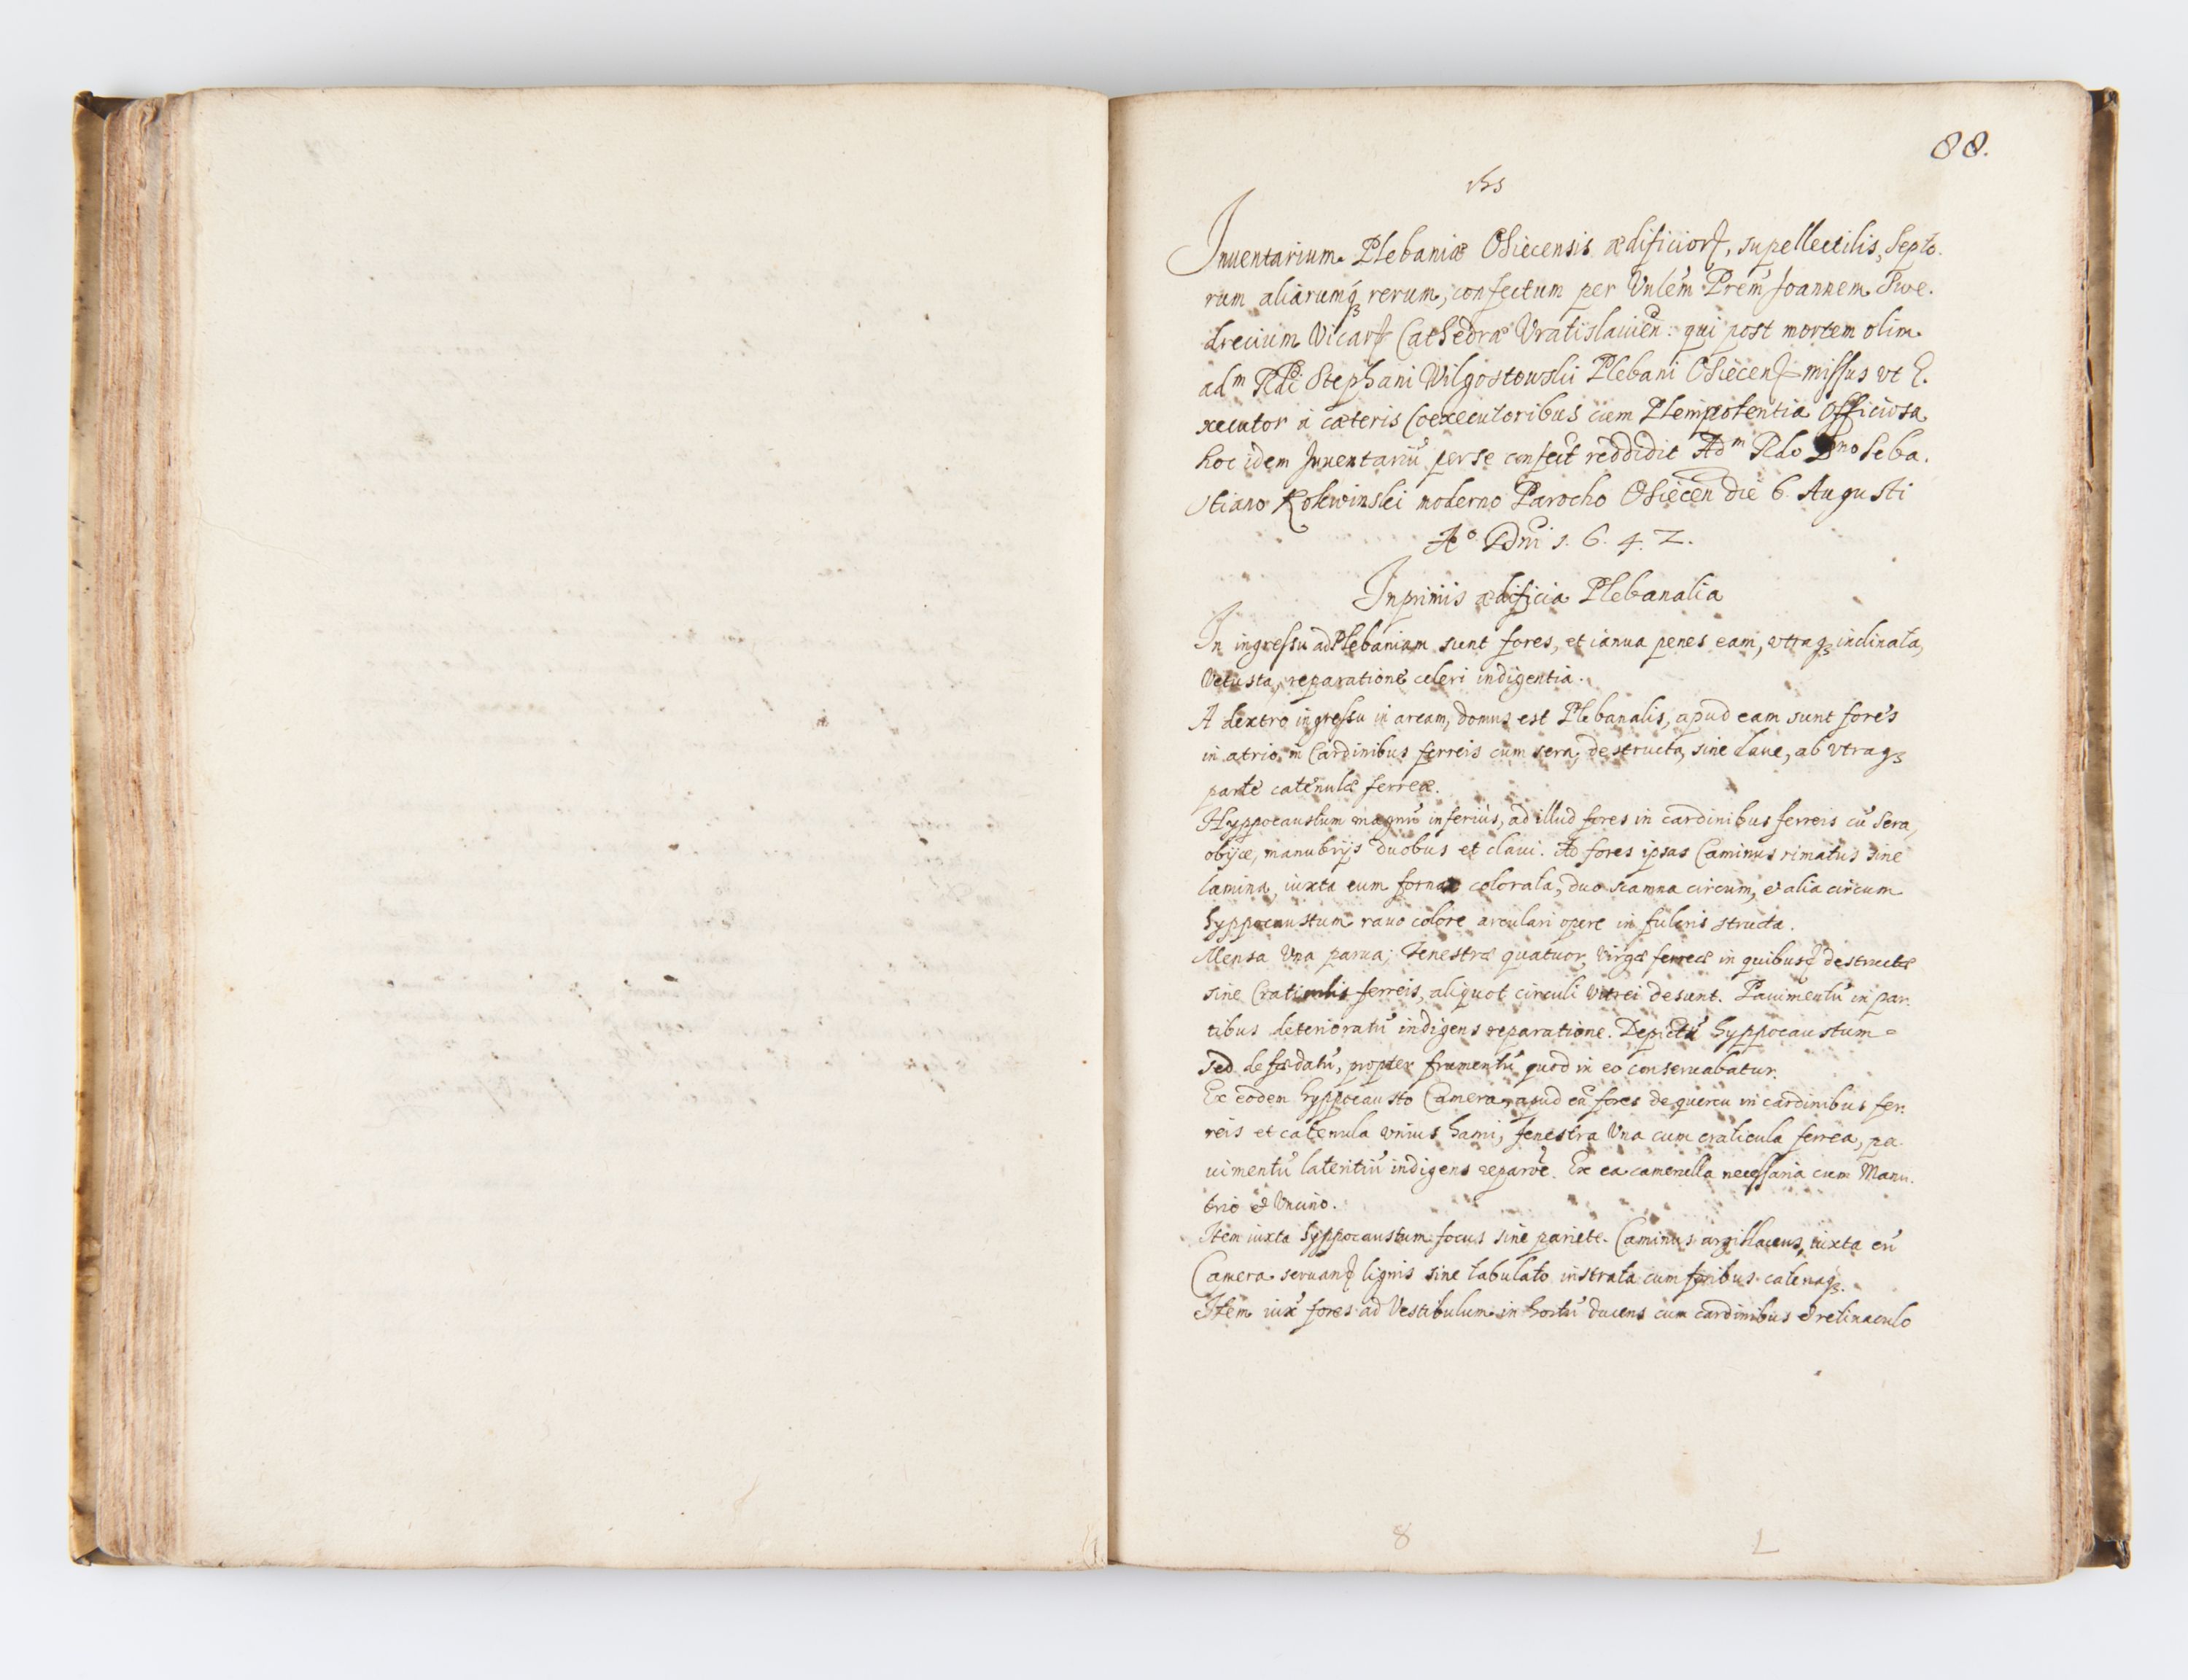 88.
Ihs
Inuentarium Plebaniæ Osiecensis ædificior, supellectilis, Septo.
rum aliarumq rerum, confectum per Vnlem Prem Joannem Swe.
drecium Vicar Cathedræ Vratislauien: qui post mortem olim
adm Rdi Stephani Wilgostowski Plebani Osiecen missus vt E.
xecutor a cæteris Coexecutoribus cum Plenipotentia officiosa
hoc idem Inuentariu per se confect reddidit Adm Rdo Dno Seba.
stiano Rokwinski moderno Parocho Osiecen die 6 Augusti
Ao Dni 1. 6. 4. 2.
Inprimis ædificia Plebanalia
In ingressu ad Plebaniam sunt fores, et ianua penes eam, vtraq inclinata,
Vetusta, reparatione celeri indigentia.
A dextro ingressu in aream, domus est Plebanalis, apud eam sunt fores
in atrio in Cardinibus ferreis cum sera, destructa, sine claue, ab vtraq
parte catenulæ ferreæ.
Hyppocaustum magnu inferius, ad illud fores in cardinibus ferreis cu sera,
obijce, manubrijs duobus et claui. Ad fores ipsas Caminus rimatus sine
lamina, iuxta eum fornax colorata, duo scamna circum, et alia circum
hyppocaustum rauo colore arculari opere in fulcris structa.
Mensa Vna parua, Fenestræ quatuor, Virgæ ferreæ in quibus destructæ
sine Craticulis ferreis, aliquot circuli vitrei desunt. Pauimentu in par.
tibus deterioratu indigens reparatione. Depictu hyppocaustum
sed defædatu, propter frumentu quod in eo conseruabatur.
Ex eodem hyppocausto Camera, apud eu fores de quercu in cardinibus fer.
reis et catenula vnius hami, fenestra Vna cum craticula ferrea, pa.
uimentu lateritiu indigens reparoe. Ex ea camerella necessaria cum Manu.
brio et Vncino.
Item iuxta hyppocaustum focus sine pariete. Caminus argillaceus, iuxta eu
Camera seruan lignis sine tabulato instrata cum foribus catenaq.
Item iux fores ad Vestibulum in hortu ducens cum cardinibus et retinaculo
8 L